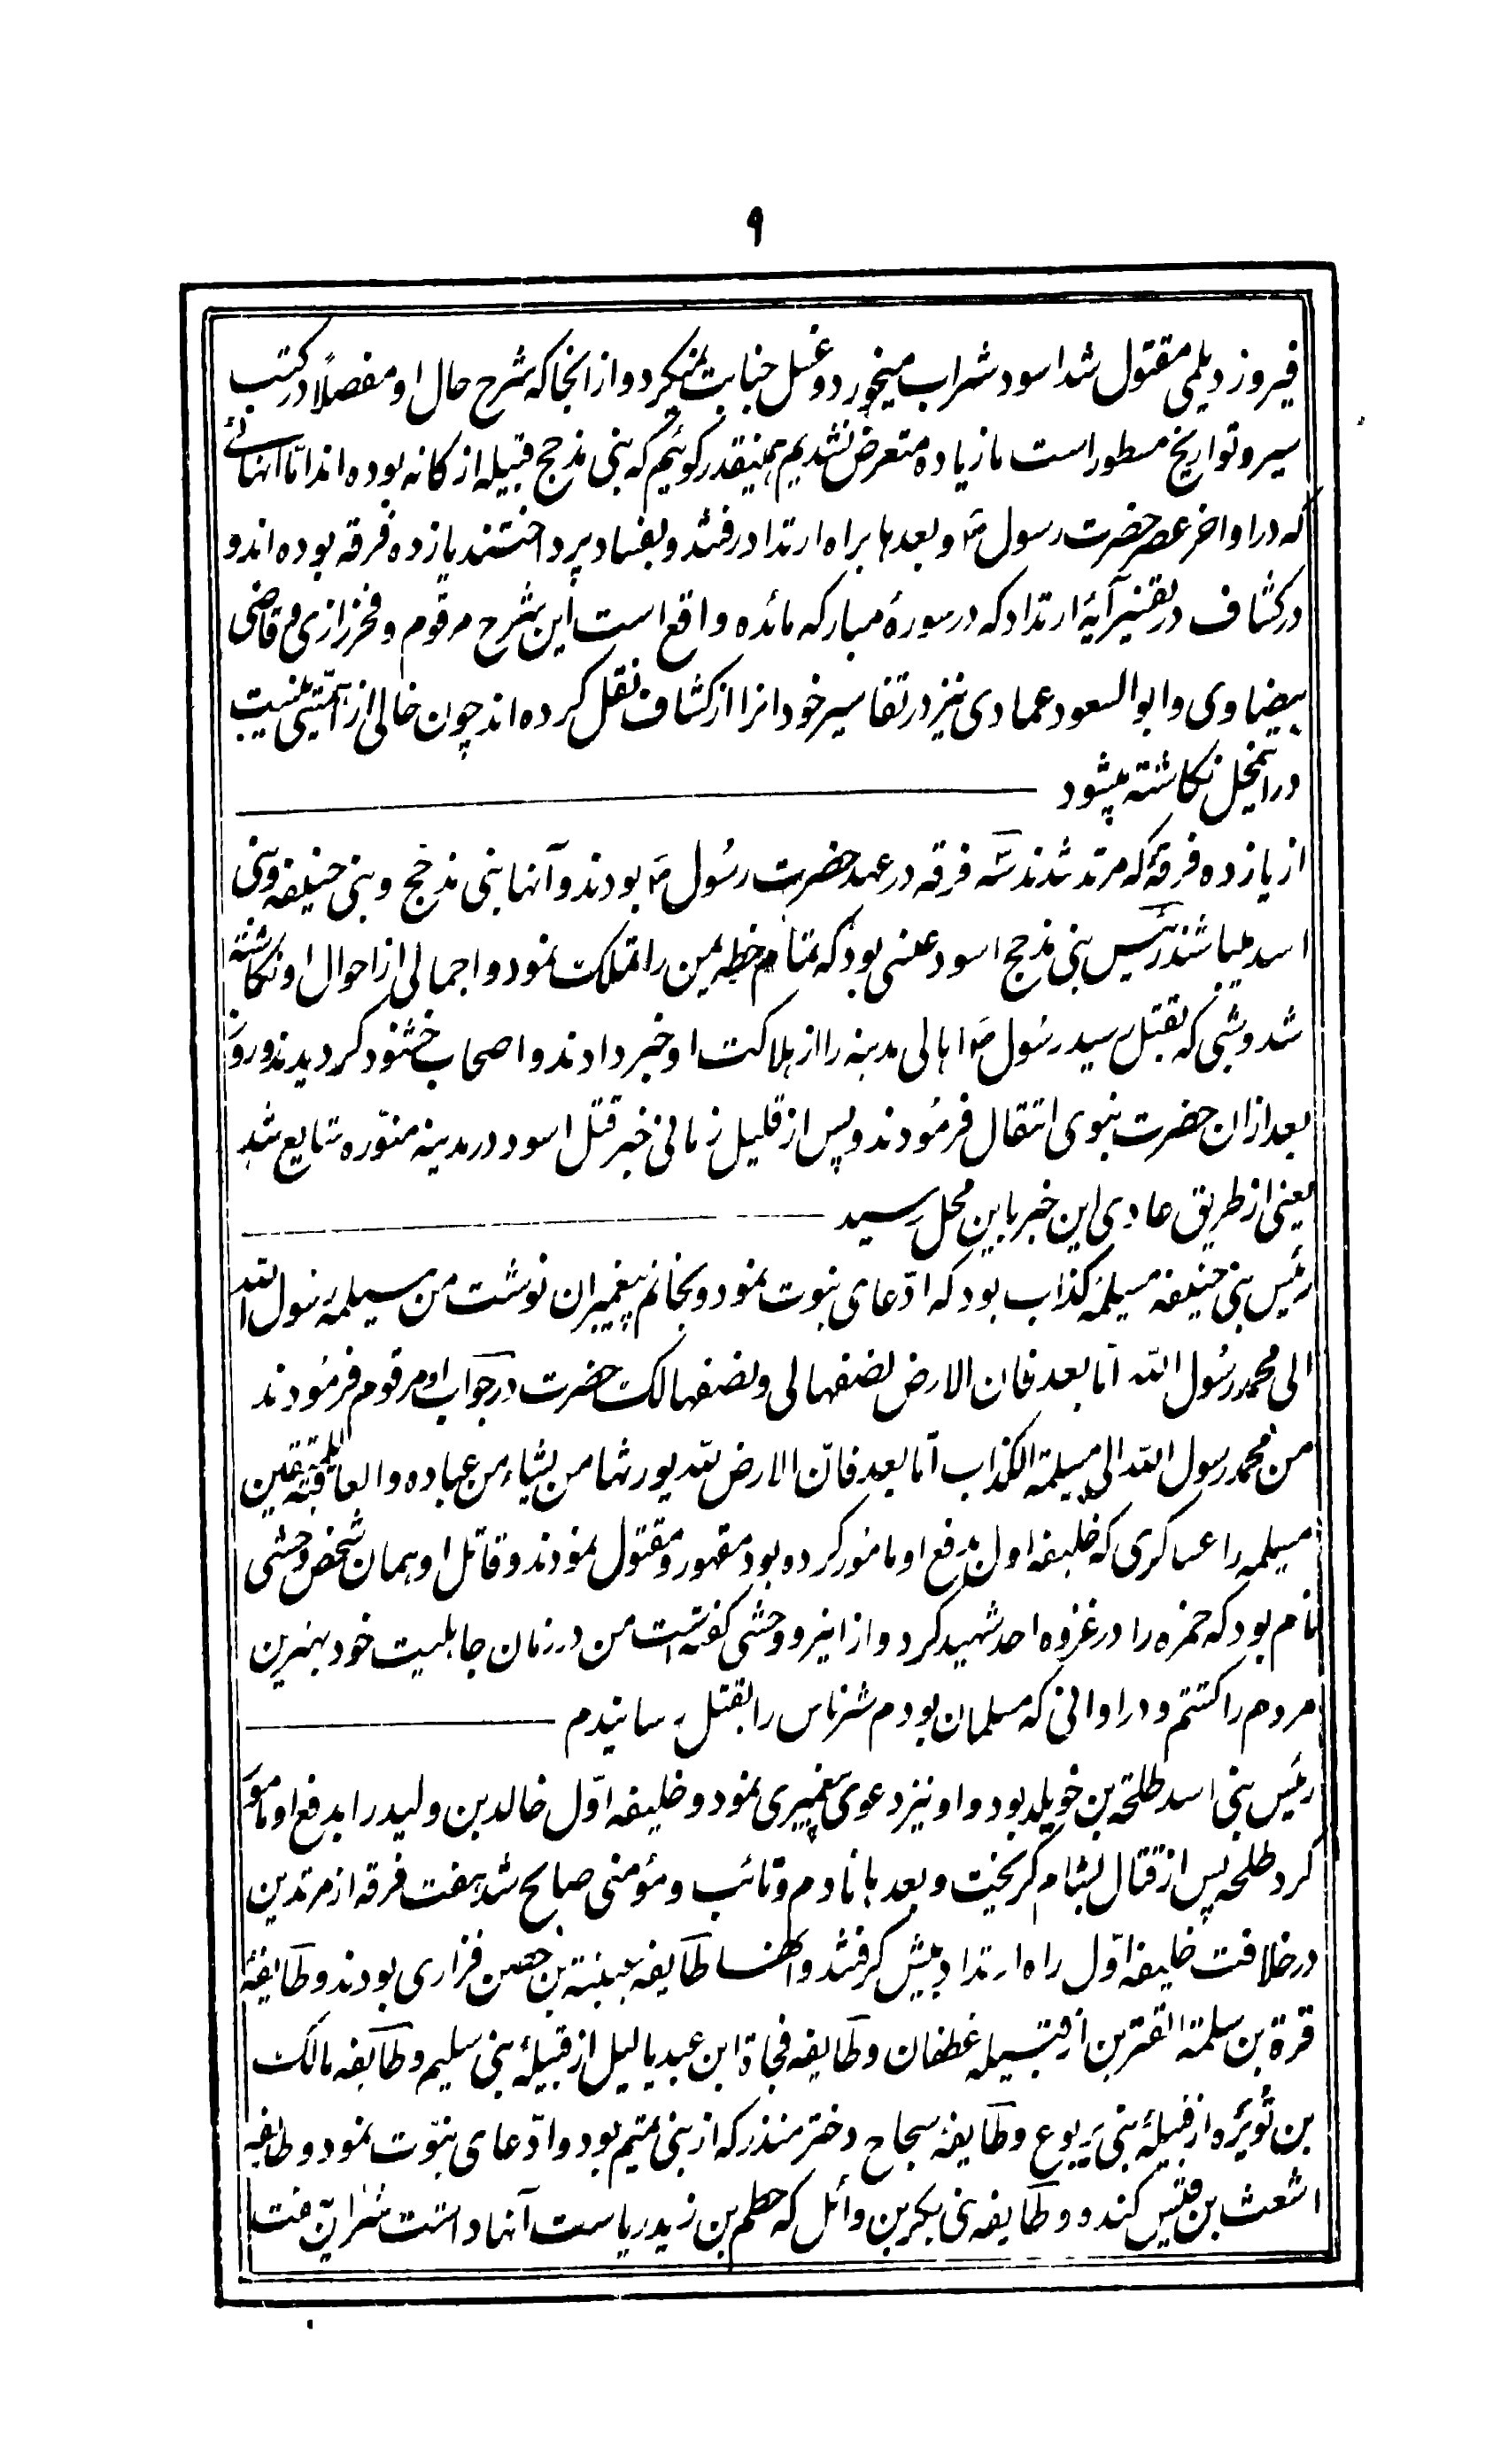 ۹
فیروز دیلمی مقتول شد اسود شراب میخورد و غسل جنابت نمیکرد و از انجا که شرح حال او مفصلاً در کتب
سیر و تواریخ مسطور است ما زیاده متعرض نشدیم همینقدر کوئیم که بنی مذحج قبیله از کانه بوده اند اما انهائے
که در اواخر عصر حضرت رسول ص و بعدها براه ارتداد رفتند و بفساد پرداختند یازده فرقه بوده اند و
در کشاف در تفسیر آیۀ ارتداد که در سورۀ مبارکه مائده واقع است این شرح مرقوم و فخر رازی و قاضی
بیضاوی و ابو السعود عمادی نیز در تفاسیر خود انرا از کشاف نقل کرده اند چون خالی از اهمیتی نیست
در اینمحل نکاشته میشود
از یازده فرقۀ که مرتد شدند سه فرقه در عهد حضرت رسول ص بودند و آنها بنی مذحج و بنی حنیفه و بنی
اسد میباشند رئیس بنی مذحج اسود عنسی بود که تمام خطه یمین را تملک نمود و اجمالی از احوال او نکاشته
شد و شبی که بقتل رسید رسول ص اهالی مدینه را از هلاکت او خبر دادند و اصحاب خشنود کردیدند و روز
بعد ازان حضرت نبوی انتقال فرمودند و پس از قلیل زمانی خبر قتل اسود در مدینه منوّره شایع شد
یعنی از طریق عادی این خبر باین محل رسید
رئیس بنی حنیفه مسیلمۀ کذاب بود که ادّعای نبوت نمود و بخاتم پیغمبران نوشت من مسیلمه رسول الله
الی محمد رسول الله اما بعد فان الارض نصفها لی و نصفها لک حضرت در جواب او مرقوم فرمودند
من محمد رسول الله الی مسیلمة الکذاب اما بعد فانّ الارض لله یورثها من یشاء من عباده و العاقبة للمتقین
مسیلمه را عساکری که خلیفه اول بدفع او مامور کرده بود مقهور و مقتول نمودند و قاتل او همان شخص وحشی
نام بود که حمزه را در غزوه احد شهید کرد و از اینرو وحشی کفته است من در زمان جاهلیت خود بهترین
مردم را کشتم و در اوانی که مسلمان بودم شر ناس را بقتل رسانیدم
رئیس بنی اسد طلحة بن خویلد بود و او نیز دعوی پیغمبری نمود و خلیفه اوّل خالد بن ولید را بدفع او مامور
کرد طلحه پس از قتال بشام کریخت و بعدها نادم و تائب و مؤمنی صالح شد هفت فرقه از مرتدین
در خلافت خلیفه اوّل راه ارتداد پیش کرفتند و انها طایفه عیینة بن حصن فزاری بودند و طایفۀ
قرة بن سلمة القتربن از قبیله غطفان و طایفه فجاة ابن عبد یالیل از قبیلۀ بنی سلیم و طایفه مالک
بن نویره از قبیلۀ بنی یربوع و طایفۀ سجاح دختر منذر که از بنی تمیم بود و ادّعای نبوّت نمود و طایفه
اشعث بن قیس کنده و طایفه بنی بکر بن وائل که حطم بن زید ریاست آنها داشت شرّ این هفت